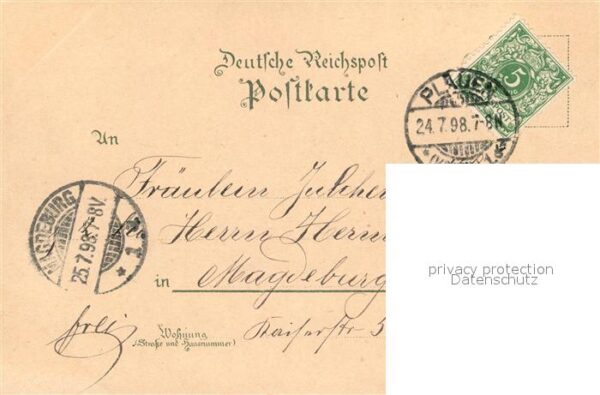 Deutsche Reichspost
Postkarte
PLAUEN
24.7.98.7-8N.
5
An
Fräulein
Herrn
in Magdeburg
MAGDEBURG
25.7.98.7-8V.
* 1
frei
Wohnung
(Straße und Hausnummer)
Kaiserstr 5
privacy protection
Datenschutz